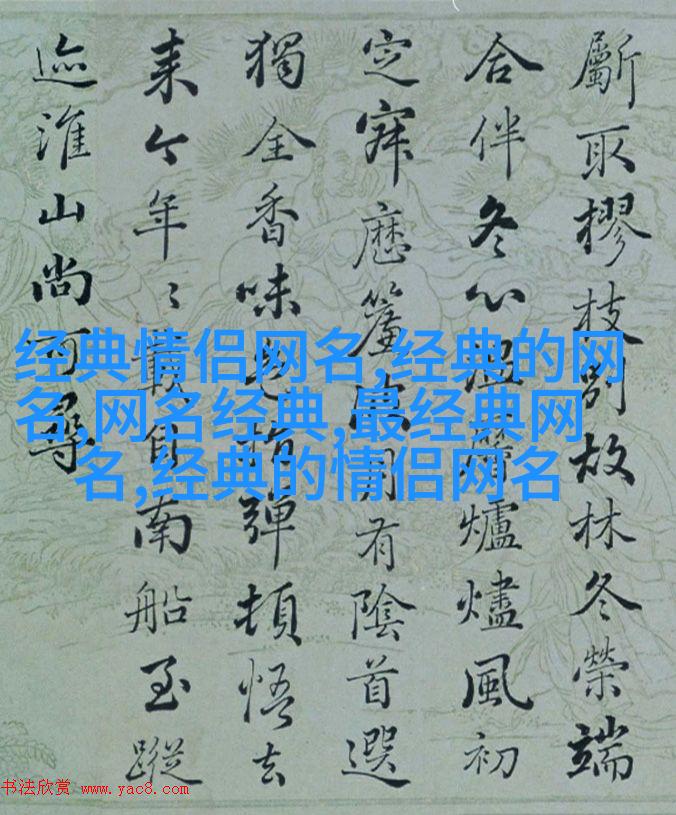 斸取樛枝别故林冬榮端
合伴冬心爐燼風初
定簾有陰首選
獨全香味指彈頓悟去
来今年〻載自南船至蹤
迹淮山尚可尋
经典情侣网名,经典的网
名,网名经典,最经典网
名,经典的情侣网名
书法欣赏 www.yac8.com